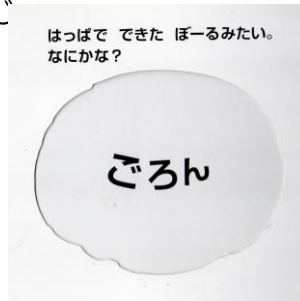 はっぱで できた ぼーるみたい。
なにかな?
ごろん